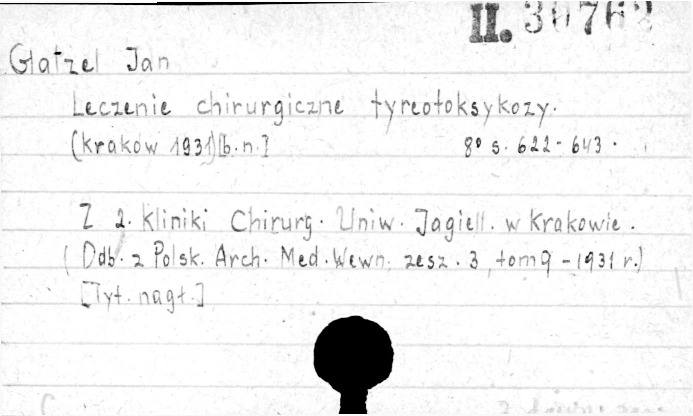 II. 30762
Glatzel Jan
Leczenie chirurgiczne tyreotoksykozy.
(Kraków 1931)[b.n.] 8° s. 622-643.
Z 2. kliniki Chirurg. Uniw. Jagiell. w Krakowie.
(Odb. z Polsk. Arch. Med. Wewn. zesz. 3, tom 9 - 1931 r.)
[Tyt. nagł.]